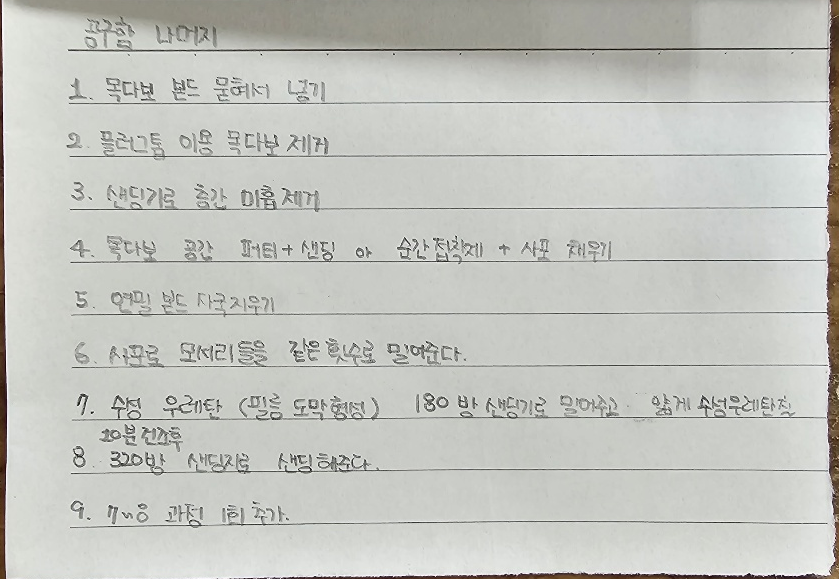 공구함 나머지
1. 목다보 본드 묻혀서 넣기
2. 플러그톱 이용 목다보 제거
3. 샌딩기로 층간 미흡제거
4. 목다보 공간 퍼티+샌딩 or 순간접착제 + 사포 채우기
5. 연필 본드 자국지우기
6. 사포로 모서리들을 같은 횟수로 밀어준다.
7. 수성 우레탄 (필름 도막형성) 180방 샌딩기로 밀어주고 얇게 수성우레탄칠
20분건조후
8. 320방 샌딩지로 샌딩해준다.
9. 7~8 과정 1회 추가.